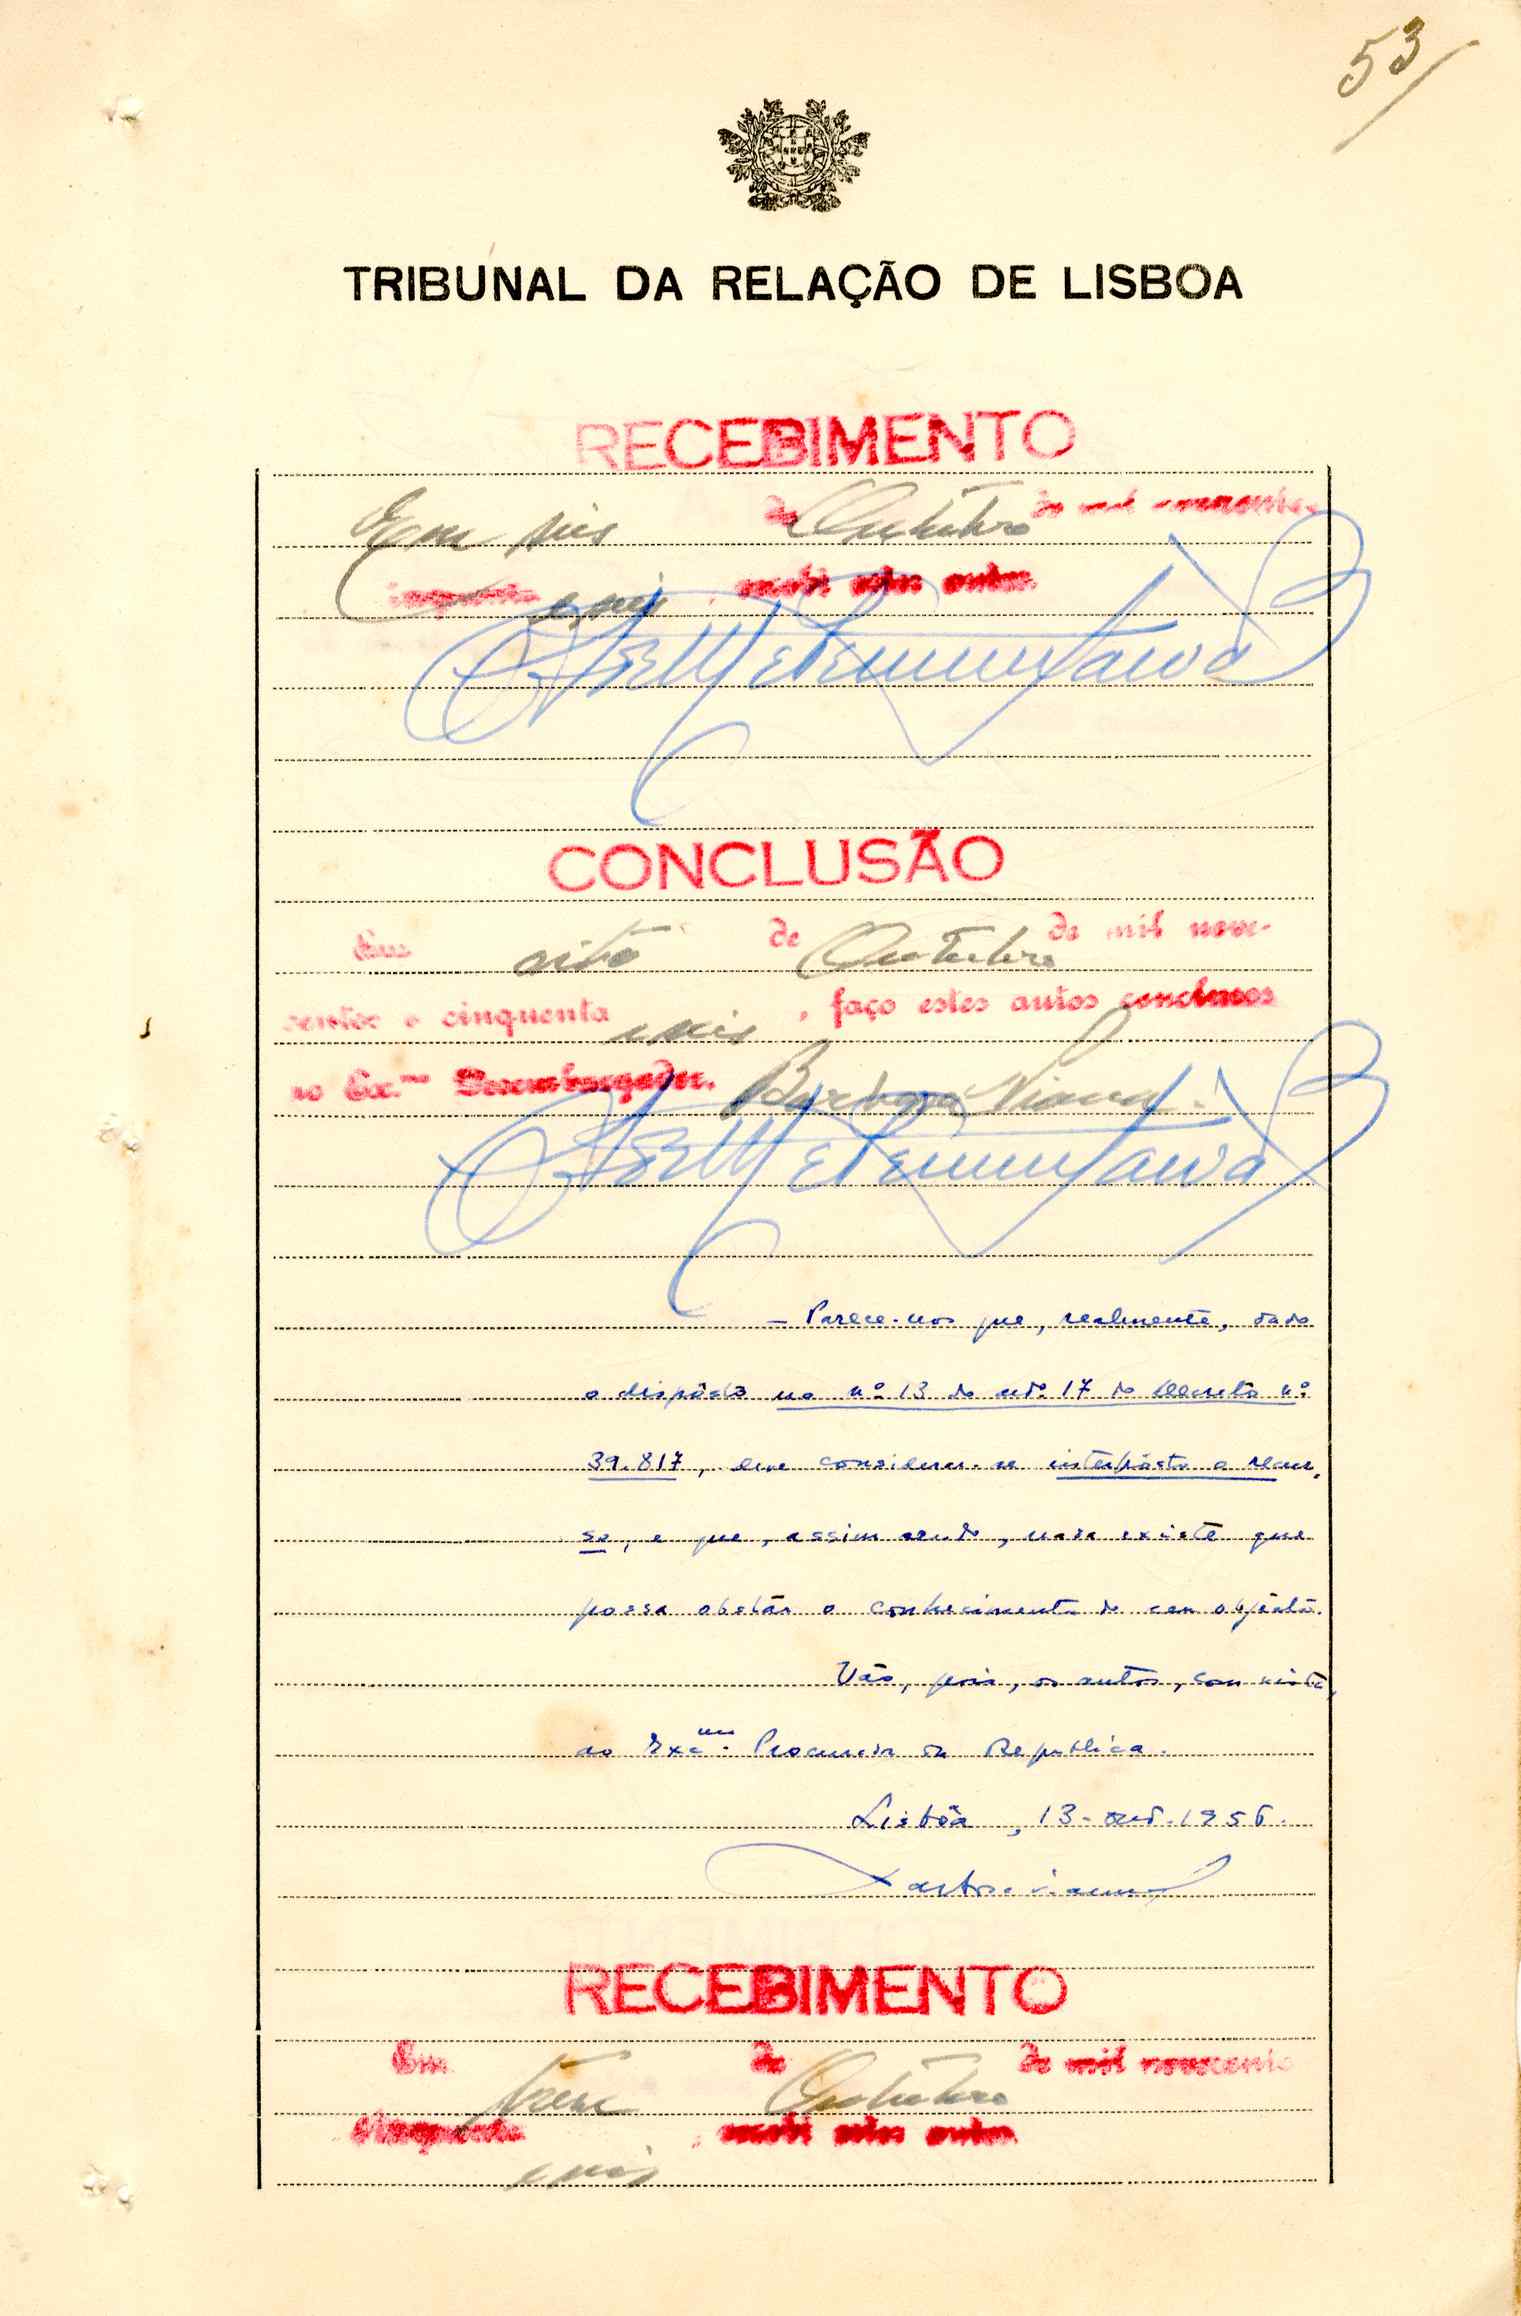 53
TRIBUNAL DA RELAÇÃO DE LISBOA
RECEBIMENTO
Em seis de Outubro de mil novecentos
cinquenta e seis, recebi estes autos.
CONCLUSÃO
Em oito de Outubro de mil nove-
centos e cinquenta e seis, faço estes autos conclusos
ao Exmo Desembargador. Barbosa Viana.
— Parece-nos que, realmente, dado
o dispôsto no nº 13 do artº 17 do Decreto nº
39.817, deve considerar-se interpôsto o recur-
so, e que, assim sendo, nada existe que
possa obstar o conhecimento do seu objécto.
Vão, pois, os autos, com vista,
ao Excmo. Procurador da Republica.
Lisbôa, 13-out-1956.
RECEBIMENTO
Em treze de Outubro de mil novecentos
cinquenta e seis, recebi estes autos.